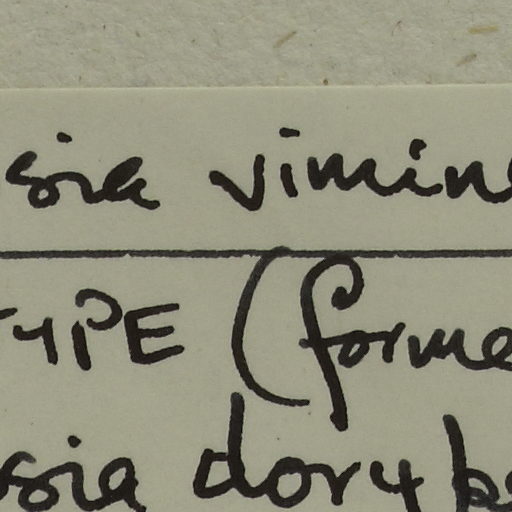 sia vimin
TYPE (forme
sia doryp